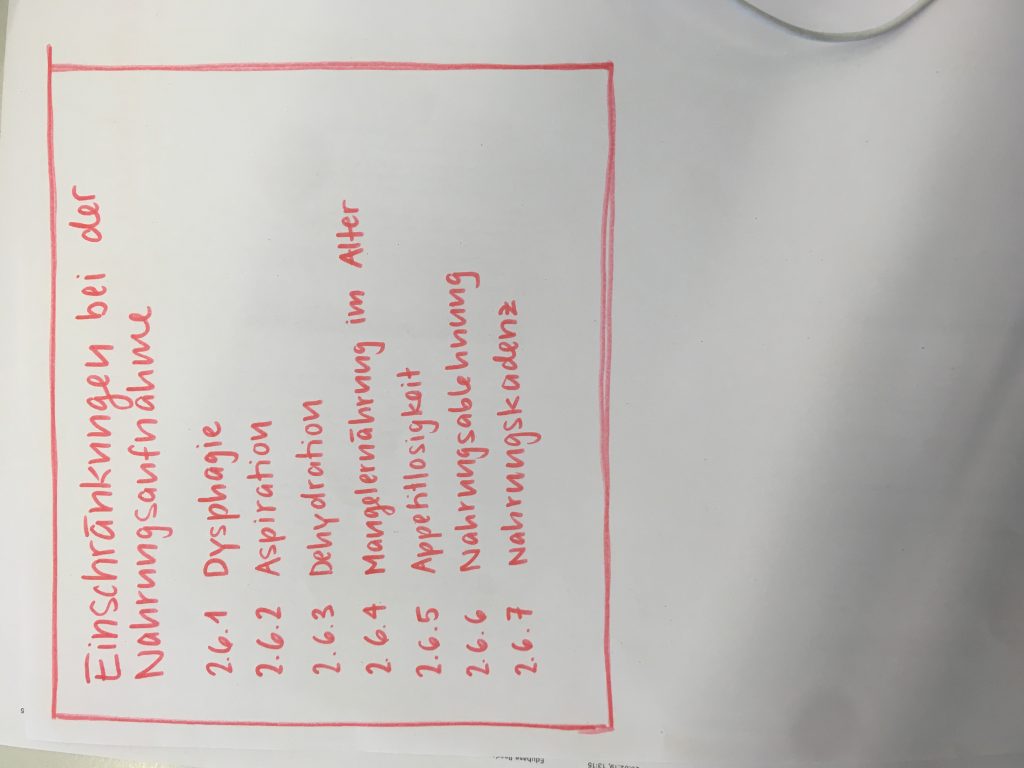 Einschränkungen bei der
Nahrungsaufnahme
2.6.1 Dysphagie
2.6.2 Aspiration
2.6.3 Dehydration
2.6.4 Mangelernährung im Alter
2.6.5 Appetitlosigkeit
2.6.6 Nahrungsablehnung
2.6.7 Nahrungskadenz
5
13:15